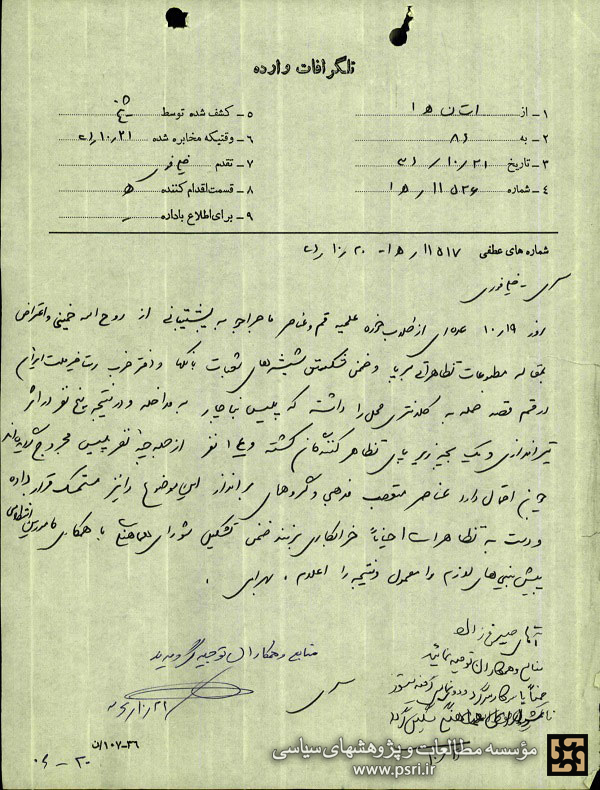 تلگرافات وارده
۱ – از استان ها
۲ – به
۳ – تاریخ ۳۱/۱۰/۲۱
۴ – شماره ۱۱۵۲۶ / ها
۵ – کشف شده توسط
۶ – وقتیکه مخابره شده ۲۱/۱۰
۷ – تقدم خیلی فوری
۸ – قسمت اقدام کننده ه
۹ – برای اطلاع باداره
شماره های عطفی ۱۱۵۱۷ / ها – ۲۰/۱۰
خیلی فوری
روز ۱۰/۱۹ عده‌ای از طلاب حوزه علمیه قم و عناصر ماجراجو به پشتیبانی از روح اله خمینی و اعتراض
بمقاله مطبوعات تظاهراتی برپا و ضمن شکستن شیشه‌های شعبات بانکها و دفتر حزب رستاخیز ملت ایران
در قم قصد حمله به کلانتری محل را داشته که پلیس بناچار به مداخله و در نتیجه پنج نفر در اثر
تیراندازی و یک بچه زیر پای تظاهر کنندگان کشته و نفر از جمله نفر پلیس مجروح شده‌اند
چون احتمال دارد عناصر متعصب مذهبی و گروههای برانداز این موضوع را نیز مستمسک قرار داده
و دست به تظاهرات احیاناً خرابکاری بزنند ضمن تشکیل شورای هماهنگی با همکاری مامورین انتظامی
پیش بینی های لازم را معمول و نتیجه را اعلام .
آقای
منابع و همکاران توجیه نمائید
منابع و همکاران توجیه گردیدند
۳۶–۱۰۷/ن
۲۰ – ۰۴
مؤسسه مطالعات و پژوهشهای سیاسی
www.psri.ir